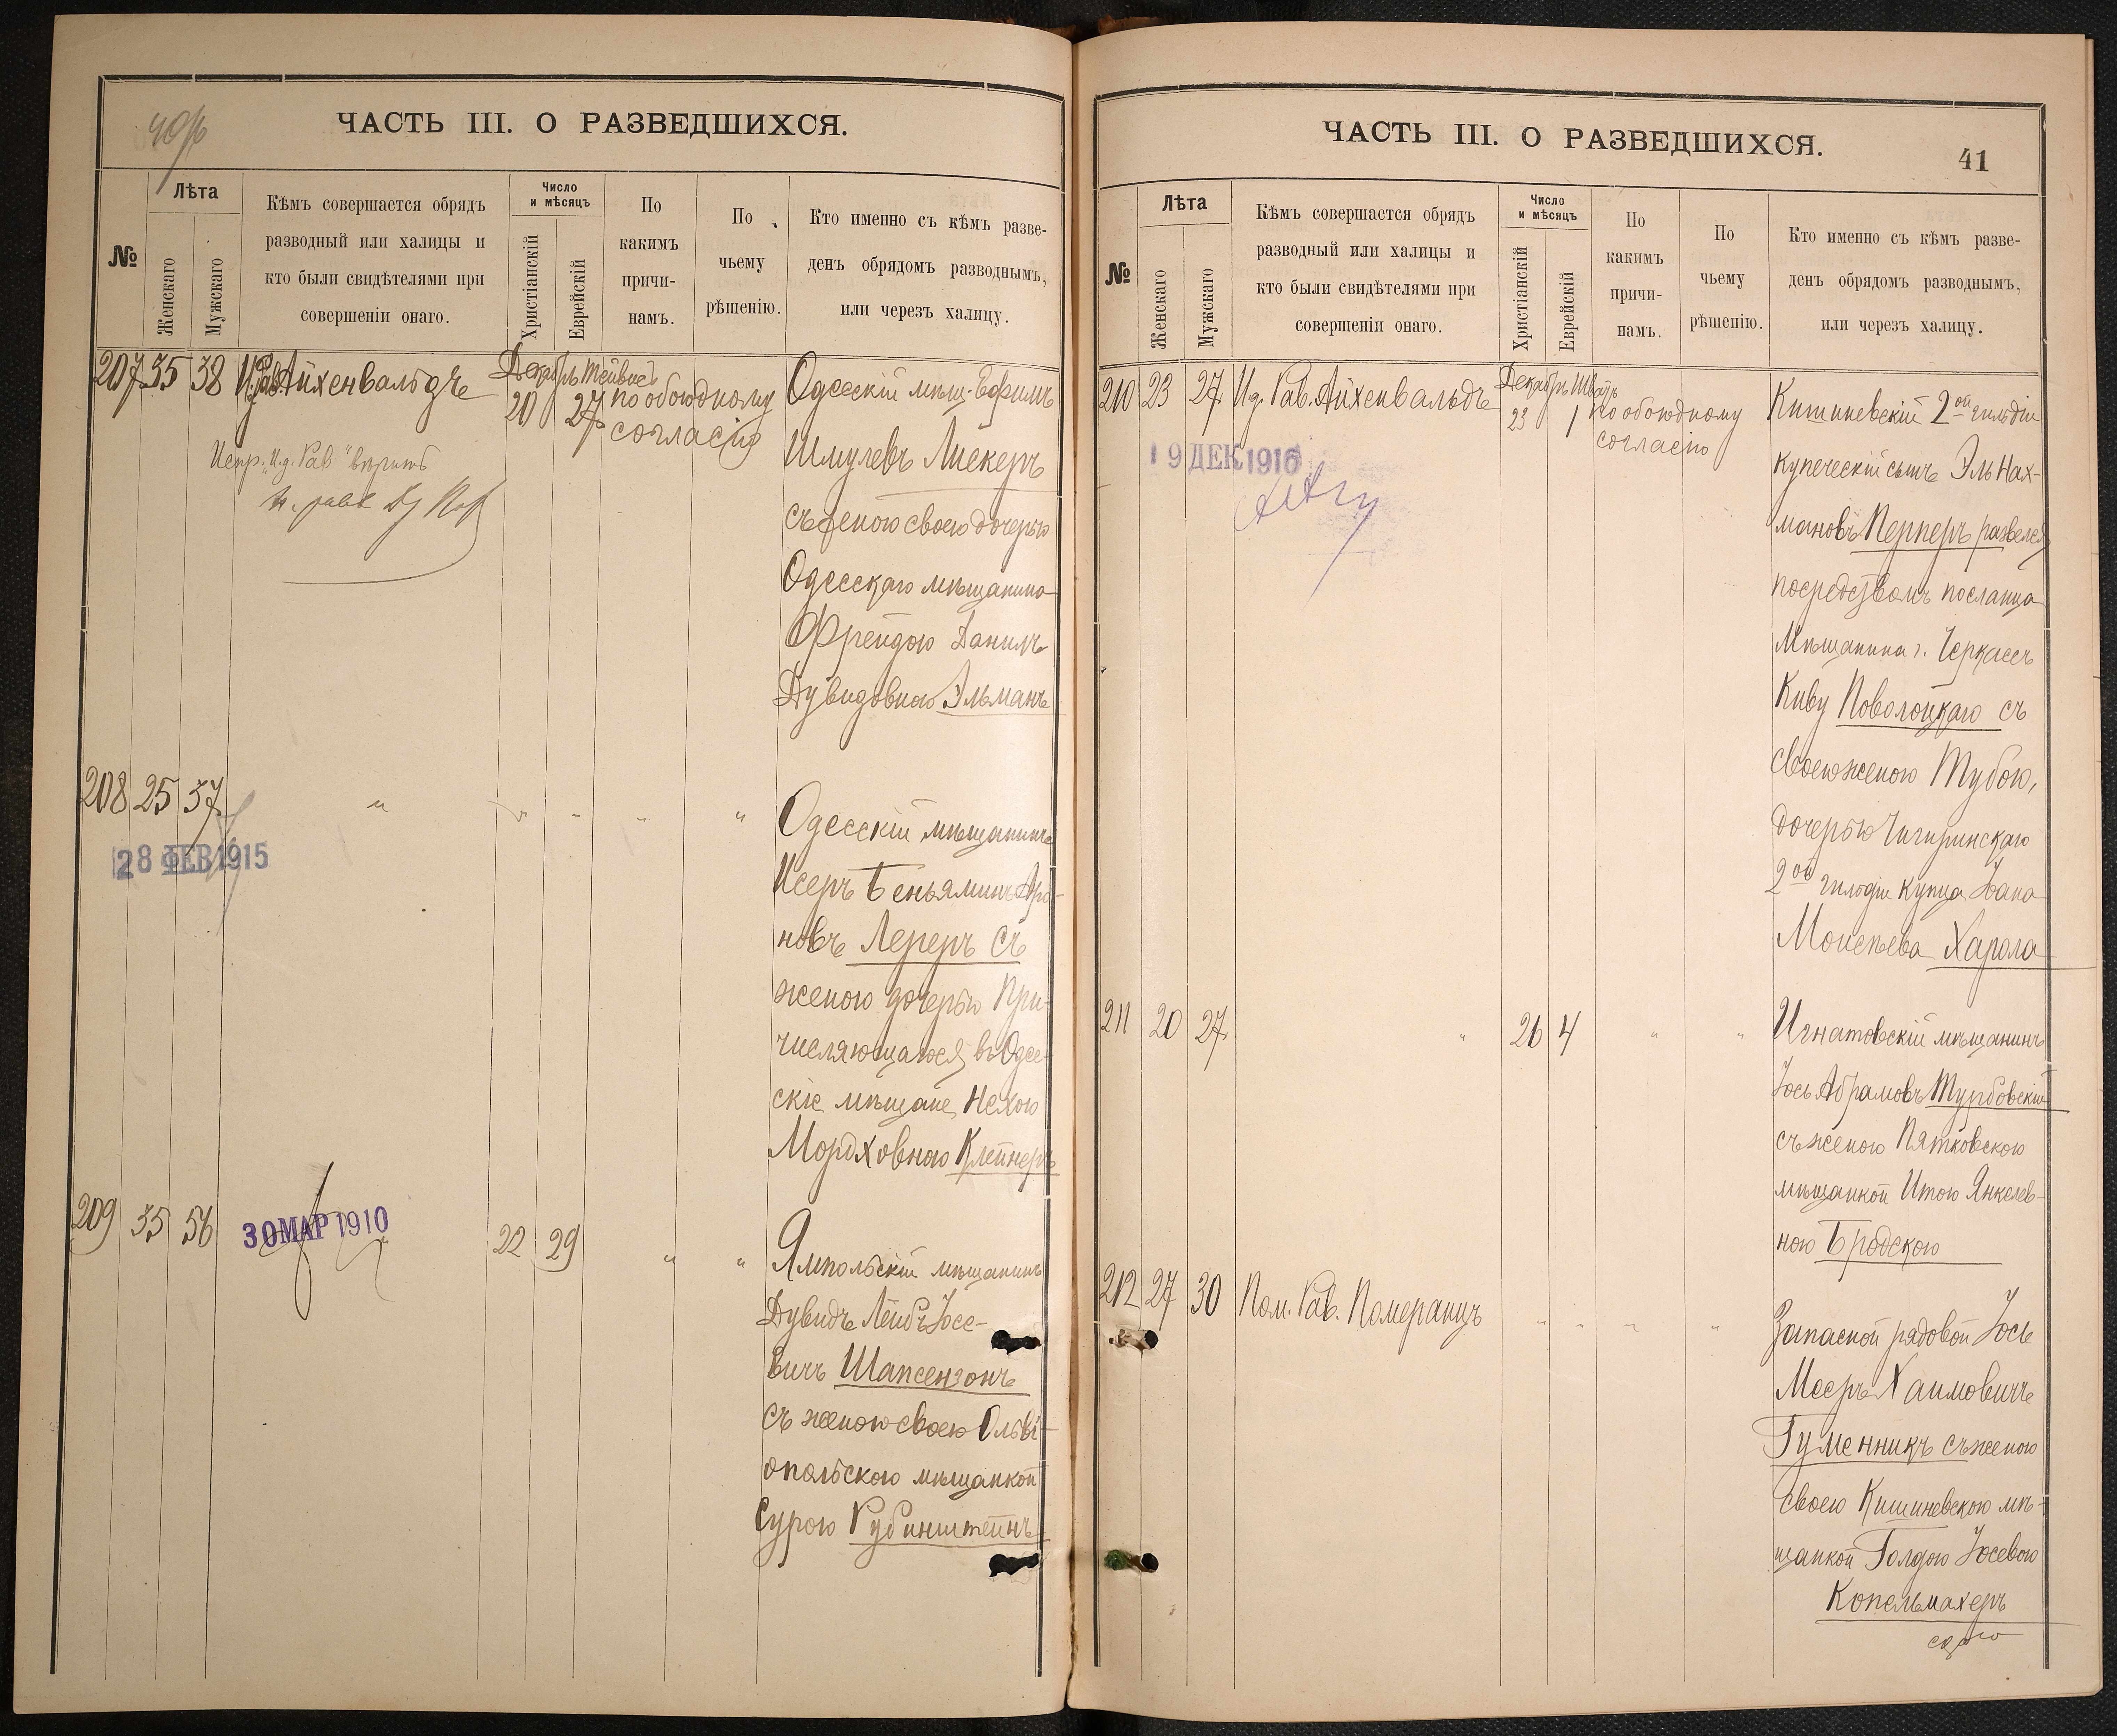 ЧАСТЬ III. О РАЗВЕДШИХСЯ.
№
Лѣта
Женскаго
Мужскаго
Кѣмъ совершается обрядъ
разводный или халицы и
кто были свидѣтелями при
совершеніи онаго.
Число
и мѣсяцъ
Христіанскій
Еврейскій
По
какимъ
причи-
намъ.
По
чьему
рѣшенію.
Кто именно съ кѣмъ разве-
денъ обрядомъ разводнымъ,
или черезъ халицу.
207 35 38 И.д. Рав. Айхенвальдъ
Декабрь Тейвисъ
20 27 по обоюдному
согласію
Испр. "И.д. Рав" вѣрить
Одесскій мѣщ. Ефимъ
Шмулевъ Лискеръ
съ женою своею дочерью
Одесскаго мѣщанина
Фрейдою Данилъ
Дувидовною Эльманъ
208 25 37 " " " " "
28 ФЕВ 1915
Одесскій мѣщанинъ
Исеръ Беньяминъ Аро-
новъ Лереръ съ
женою дочерью при-
числяющагося въ Одес-
скіе мѣщане Нехою
Мордховною Клейнеръ
209 35 56
30 МАР 1910
22 29 " "
Ямпольскій мѣщанинъ
Дувидъ Лейбъ Іосе-
вичъ Шапсензонъ
съ женою своею Ольві-
опольскою мѣщанкой
Сурою Рубинштейнъ
ЧАСТЬ III. О РАЗВЕДШИХСЯ.
41
№
Лѣта
Женскаго
Мужскаго
Кѣмъ совершается обрядъ
разводный или халицы и
кто были свидѣтелями при
совершеніи онаго.
Число
и мѣсяцъ
Христіанскій
Еврейскій
По
какимъ
причи-
намъ.
По
чьему
рѣшенію.
Кто именно съ кѣмъ разве-
денъ обрядомъ разводнымъ,
или черезъ халицу.
210 23 27 И.д. Рав. Айхенвальдъ
Декабрь Шватъ
23 1 по обоюдному
согласію
19 ДЕК 1916
Кишиневскій 2ой гильдіи
купеческій сынъ Эль Нах-
мановъ Перперъ развелся
посредствомъ посланца
мѣщанина г. Черкассъ
Киву Поволоцкаго съ
своею женою Тубою,
дочерью Чигиринскаго
2ой гильдіи купца Іоана
Моисѣева Харола
211 20 27 " 26 4 " "
Игнатовскій мѣщанинъ
Іось Абрамовъ Турбовскій
съ женою Пятковскою
мѣщанкой Итою Янкелев-
ною Бродскою
212 27 30 Пом. Рав. Померанцъ " " " "
Запасной рядовой Іось
Мееръ Хаимовичъ
Гуменникъ съ женою
своею Кишиневскою мѣ-
щанкой Голдою Іосевою
Копельмахеръ